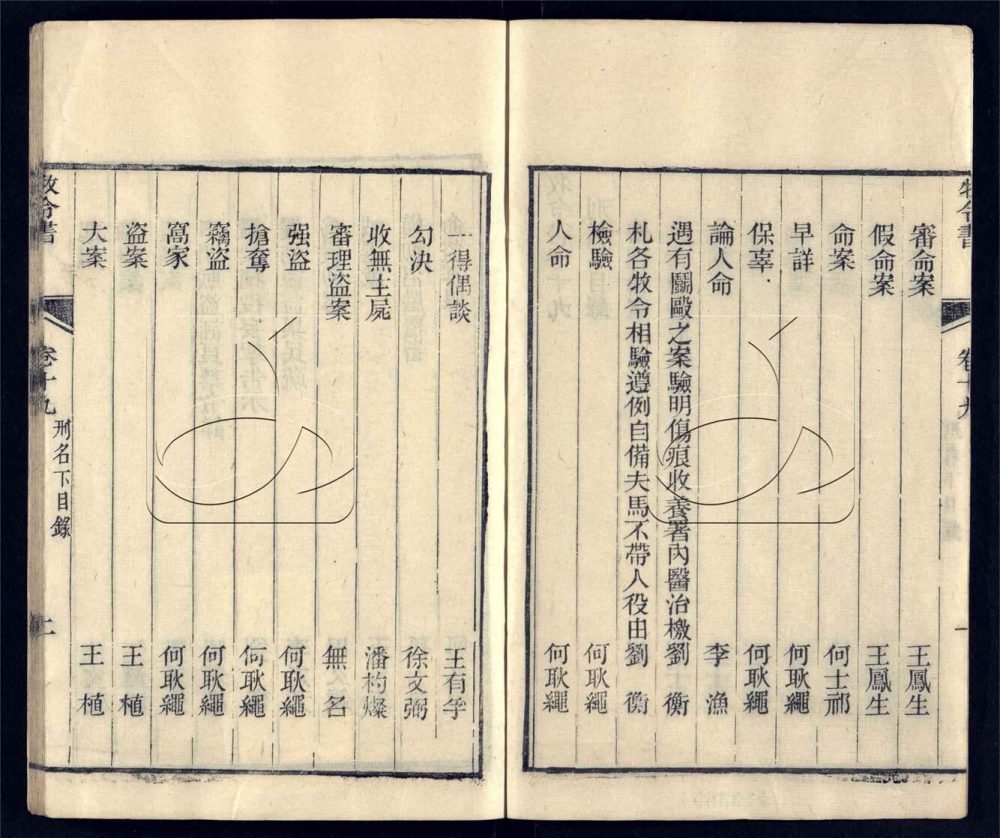 牧令書
審命案　王鳳生
假命案　王鳳生
命案　何士祁
早詳　何耿繩
保辜　何耿繩
論人命　李漁
遇有鬭毆之案驗明傷痕收養署內醫治檄　劉衡
札各牧令相驗遵例自備夫馬不帶人役由　劉衡
檢驗　何耿繩
人命　何耿繩
一得偶談　王有孚
勾決　徐文弼
收無主屍　潘杓燦
審理盜案　無名
强盜　何耿繩
搶奪　何耿繩
竊盜　何耿繩
窩家　何耿繩
盜案　王植
大案　王植
牧令書　卷十九　刑名下目錄　二